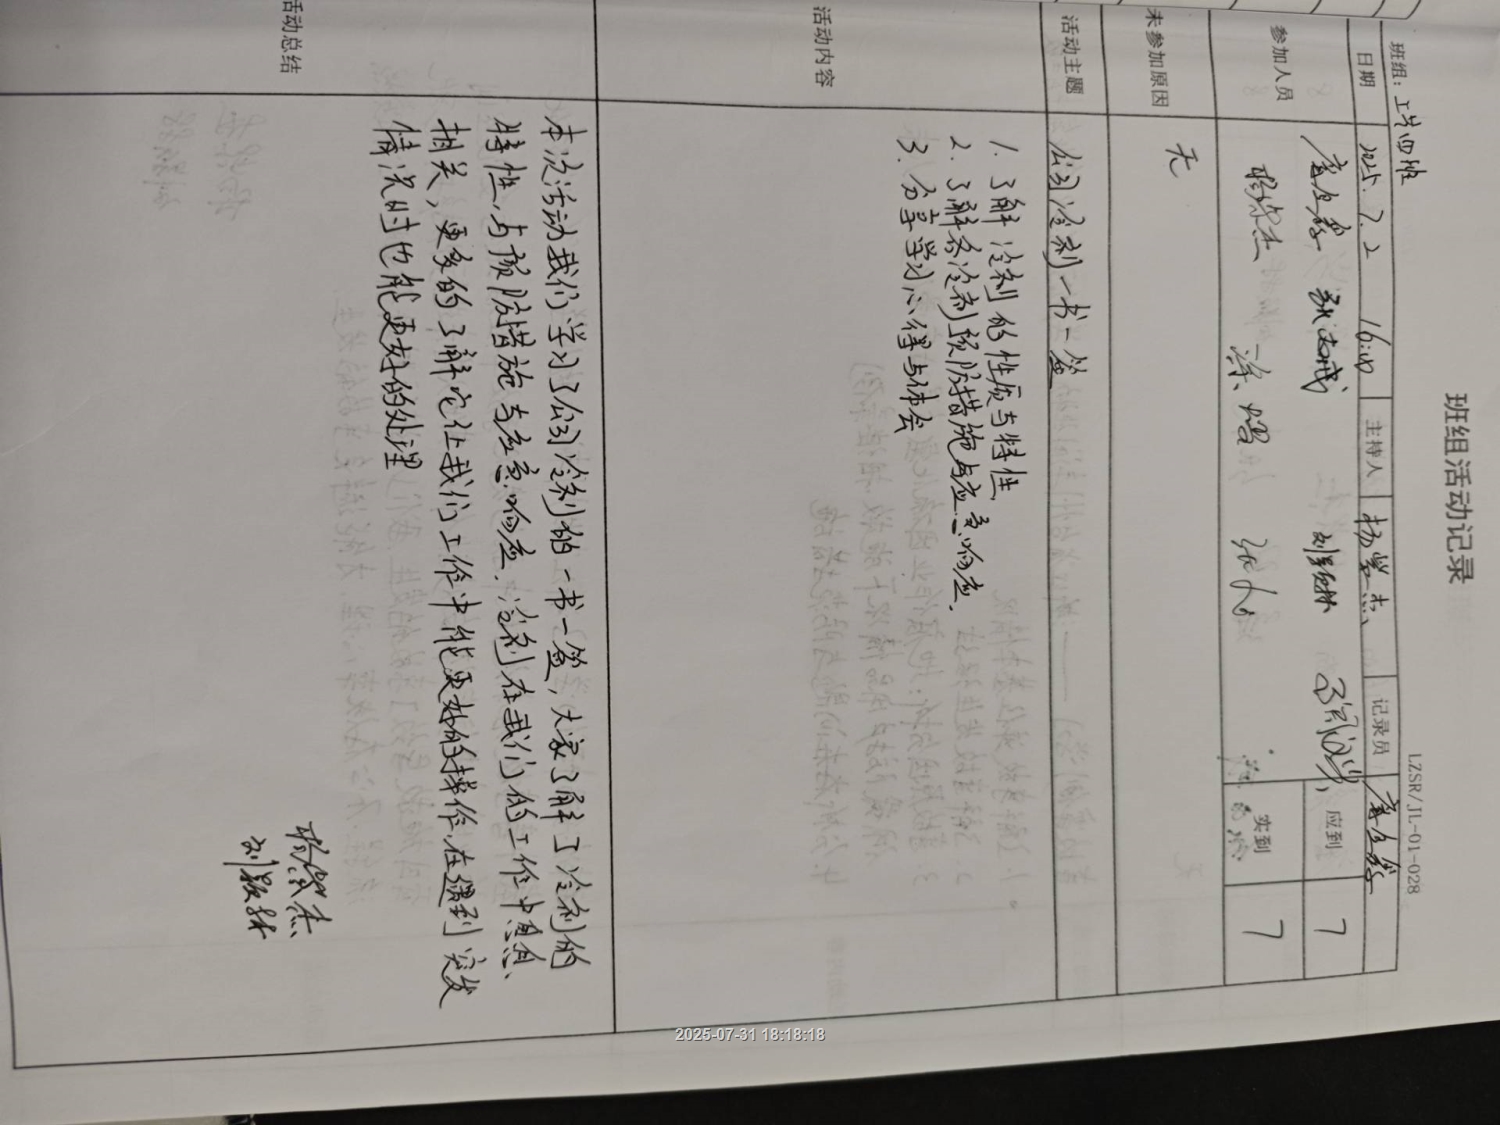 班组活动记录
LZSR/JL-01-028
班组：上羊四班
日期 2025.7.2 16:00 主持人 杨紫杰 记录员
参加人员
应到 7
实到 7
未参加原因 无
活动主题 公司冷剂一书一签
活动内容
1. 了解冷剂的性质与特性
2. 了解各冷剂预防措施与应急响应.
3. 分享学习心得与体会
活动总结
本次活动我们学习了公司冷剂的一书一签，大家了解了冷剂的
特性，与预防措施与应急响应.冷剂在我们的工作中息息
相关，更多的了解它让我们工作中能更好的操作，在遇到突发
情况时也能更好的处理
杨紫杰
刘颖林
2025-07-31 18:18:18